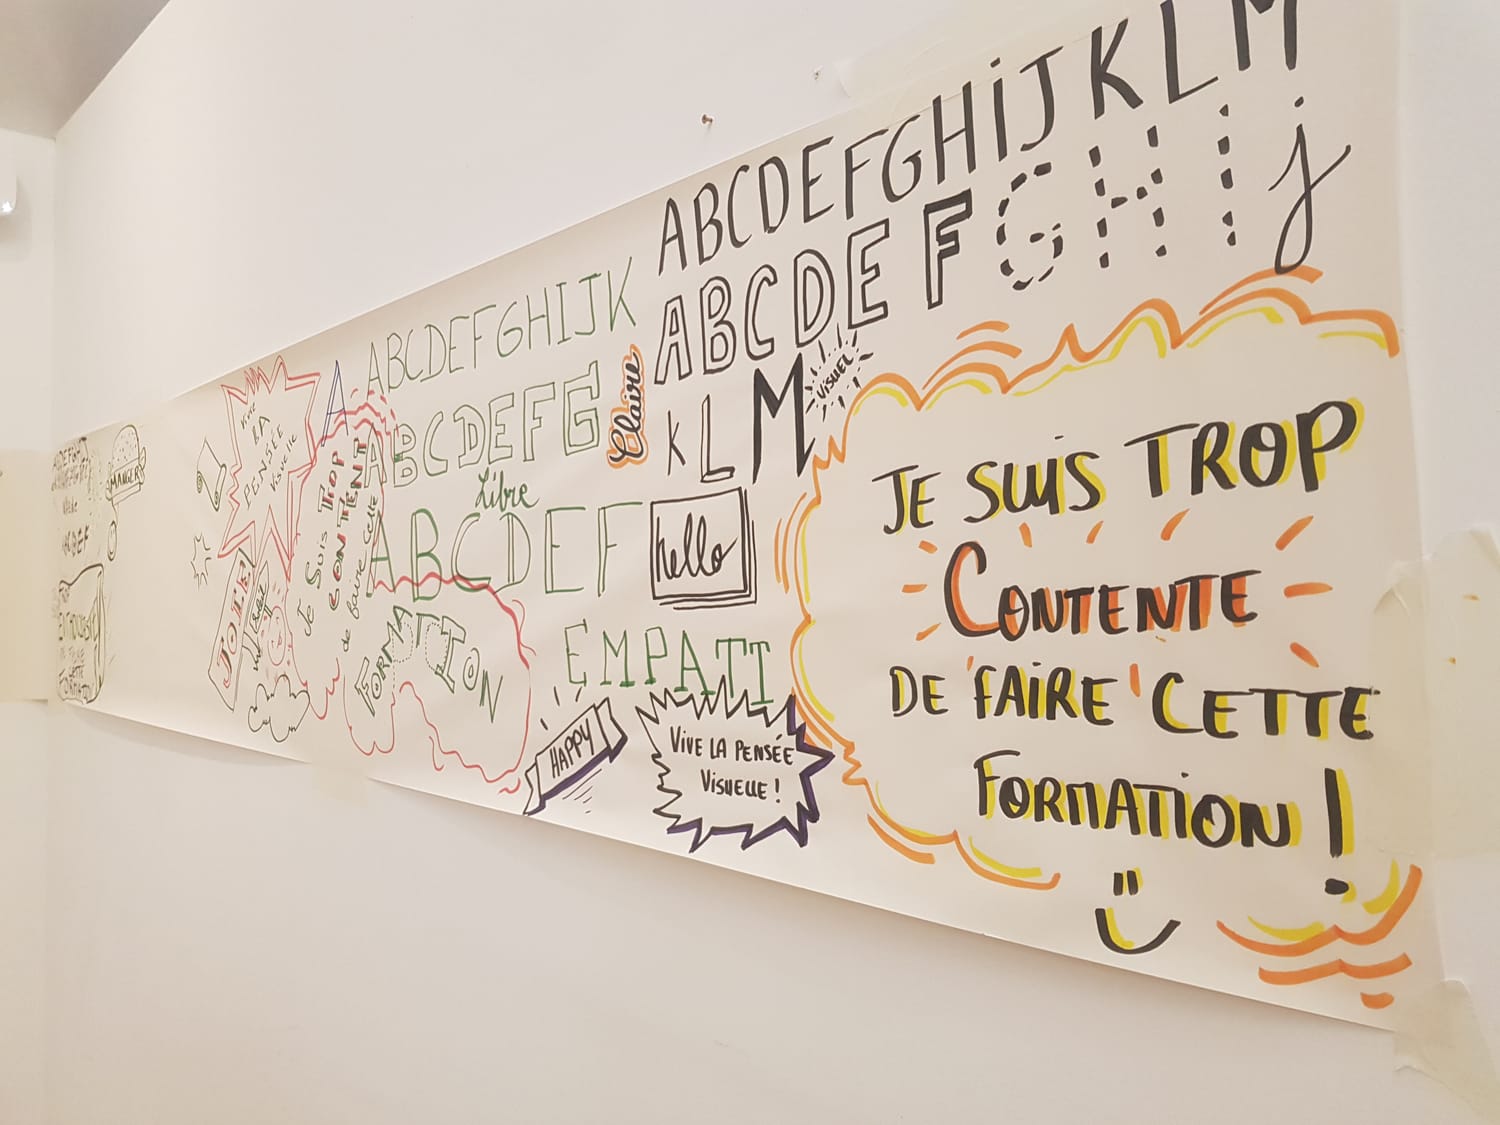 ABCDEFGHIJKLM
ABCDEFGHIj
KLM
VISUEL !
JE SUIS TROP
CONTENTE
DE FAIRE CETTE
FORMATION !
hello
Claire
ABCDEFGHIJK
ABCDEFG
Libre
ABCDEF
EMPATT
HAPPY
VIVE LA PENSÉE
VISUELLE !
A
VIVE
LA
PENSÉE
VISUELLE
JE SUIS TROP
CONTENT
de faire cette
FORMATION
JOIE
MANGER